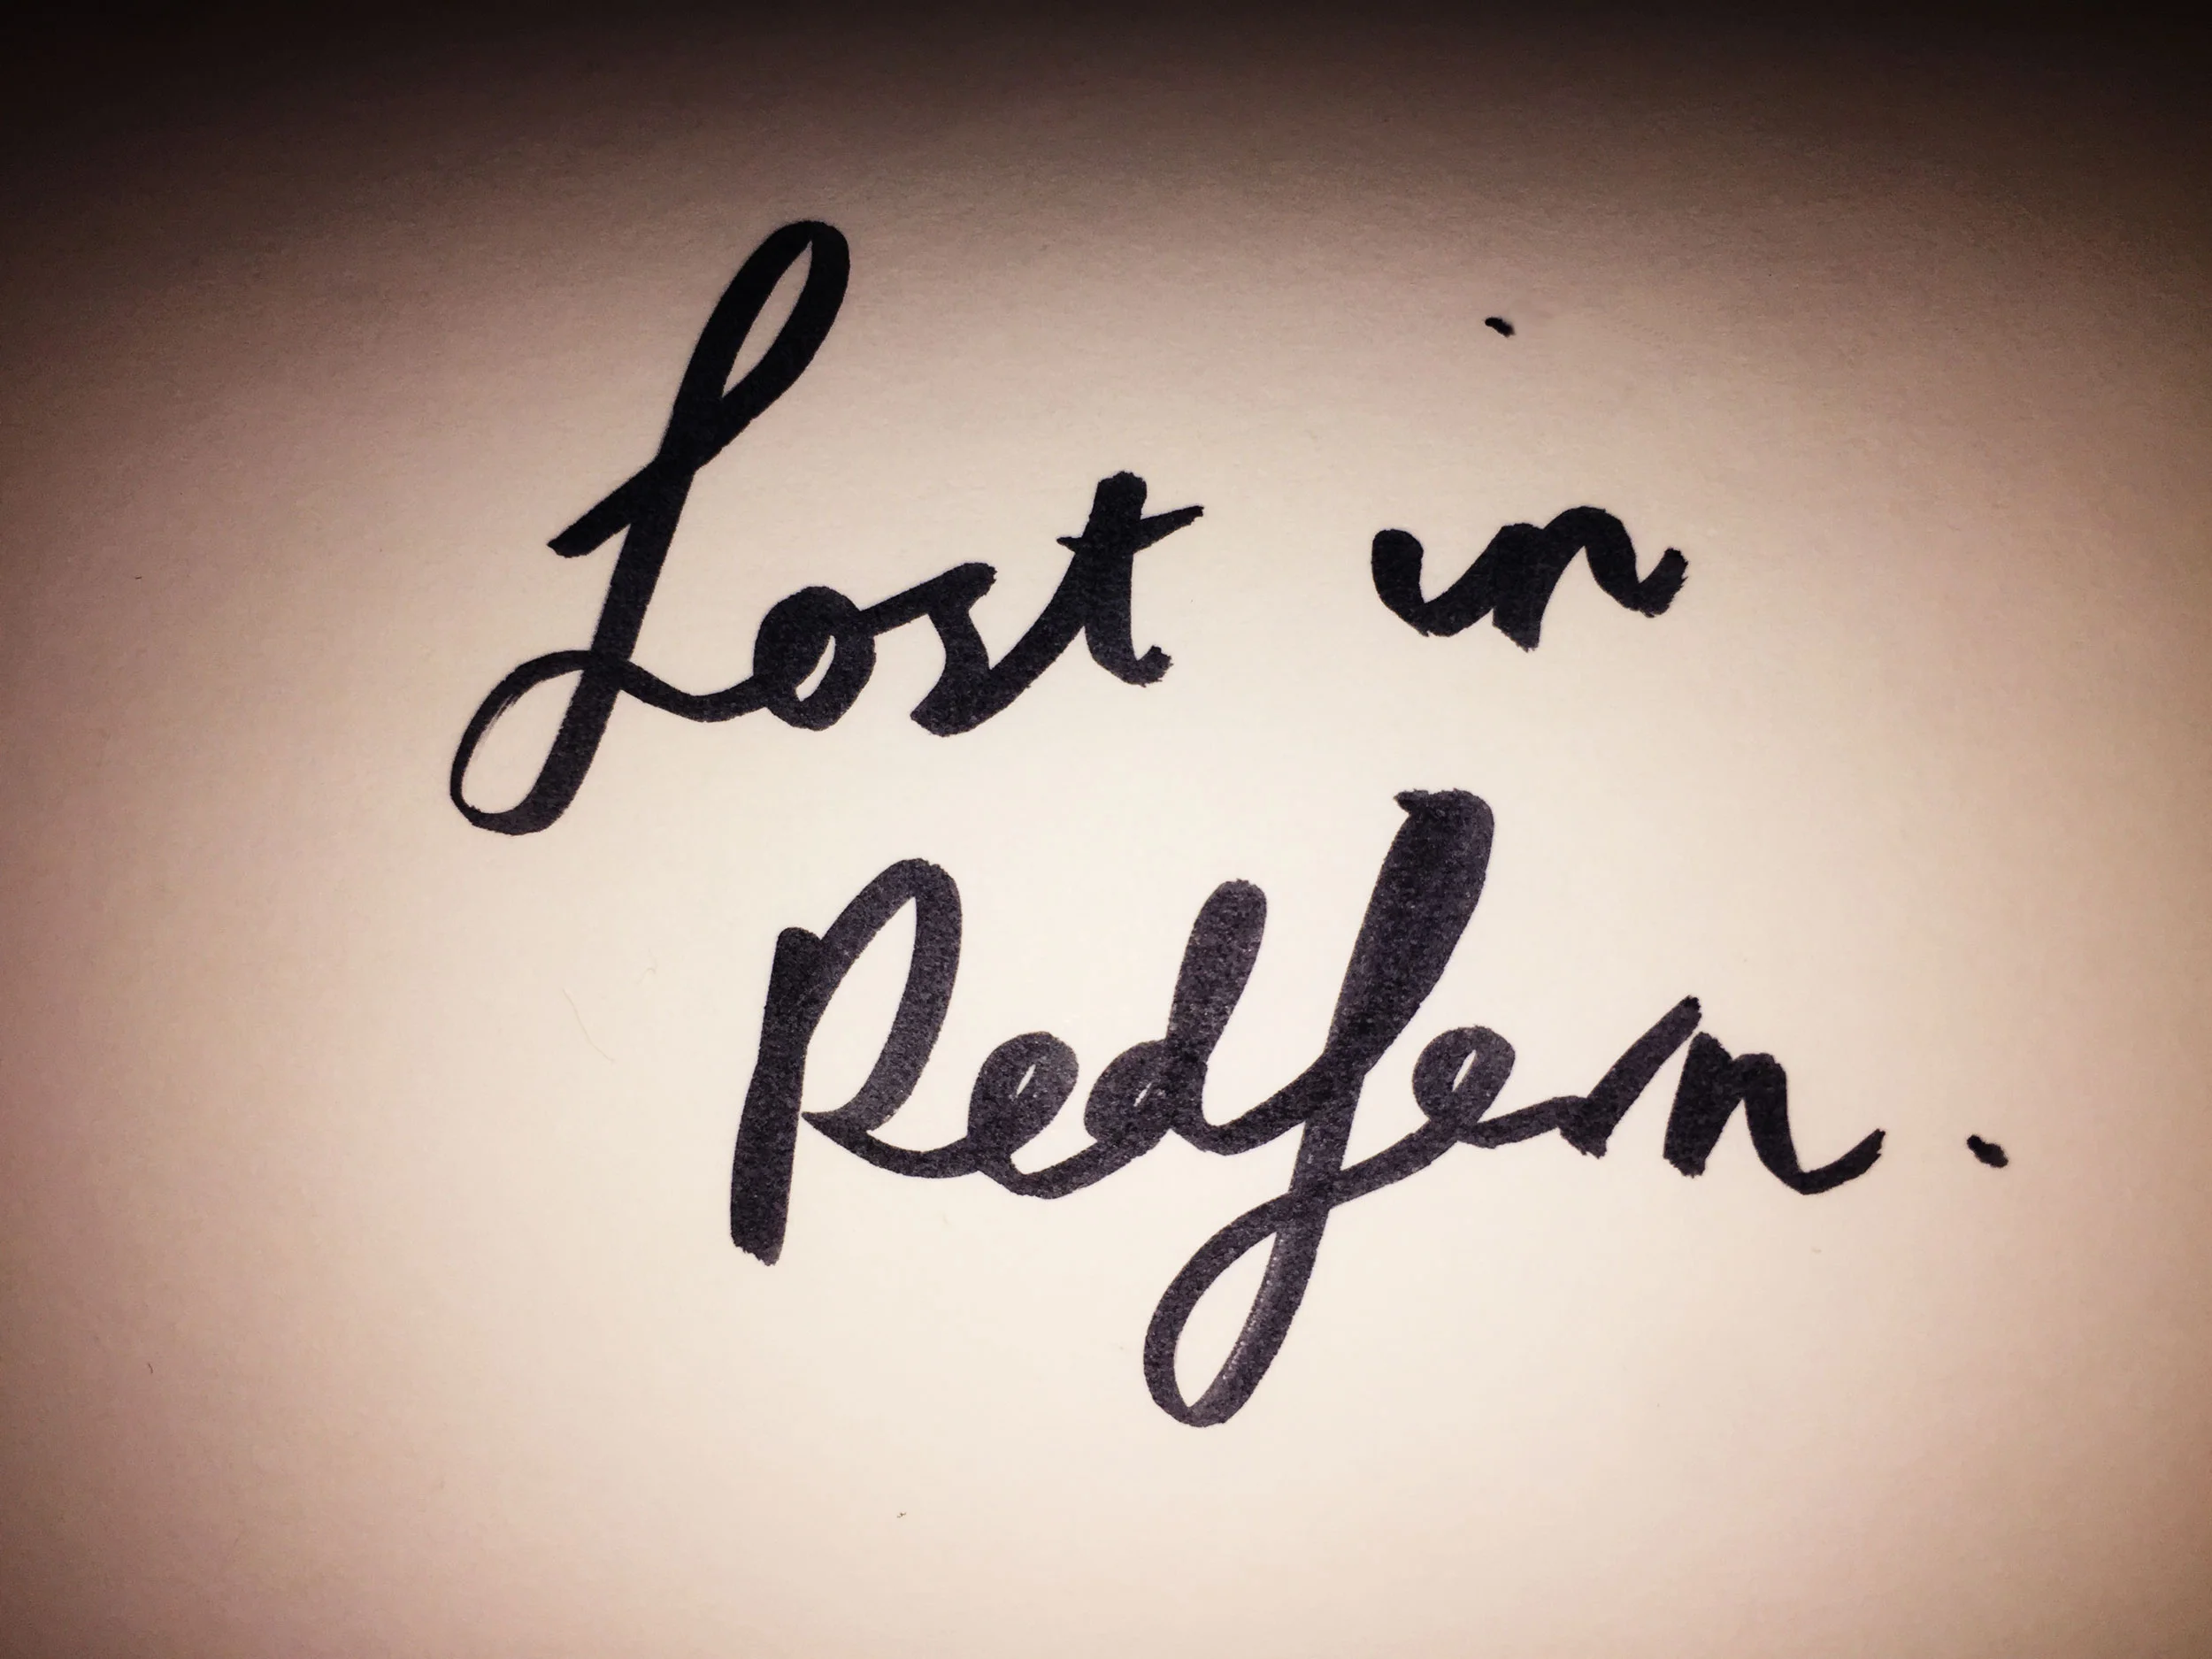 Lost in
Redfern.